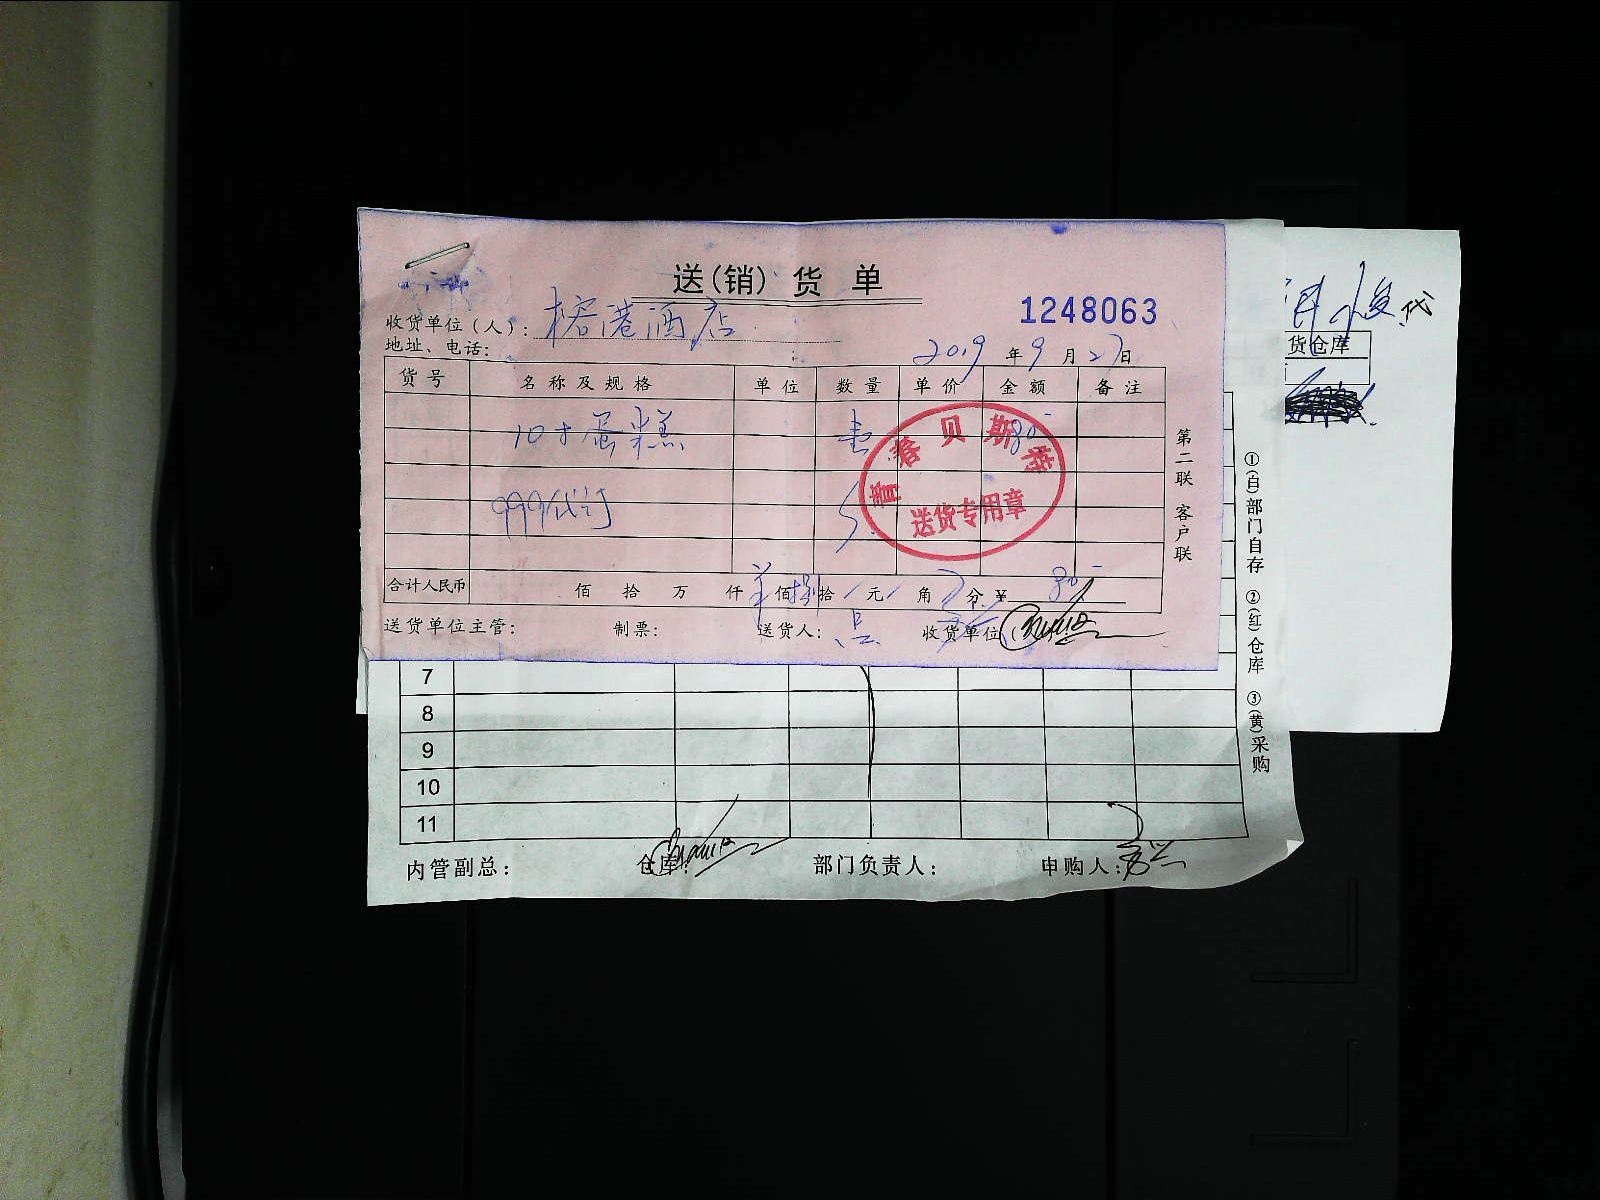 送(销)货单
1248063
收货单位(人): 榕港酒店
地址、电话:
2019年9月27日
货号 名称及规格 单位 数量 单价 金额 备注
10寸蛋糕 80-
999代订
青春贝斯特
送货专用章
合计人民币 佰 拾 万 仟 佰 捌拾 元 角 分 ¥ 80-
送货单位主管: 制票: 送货人: 收货单位
第二联 客户联
货仓库
代
①(自)部门自存 ②(红)仓库 ③(黄)采购
7
8
9
10
11
内管副总: 仓库: 部门负责人: 申购人: